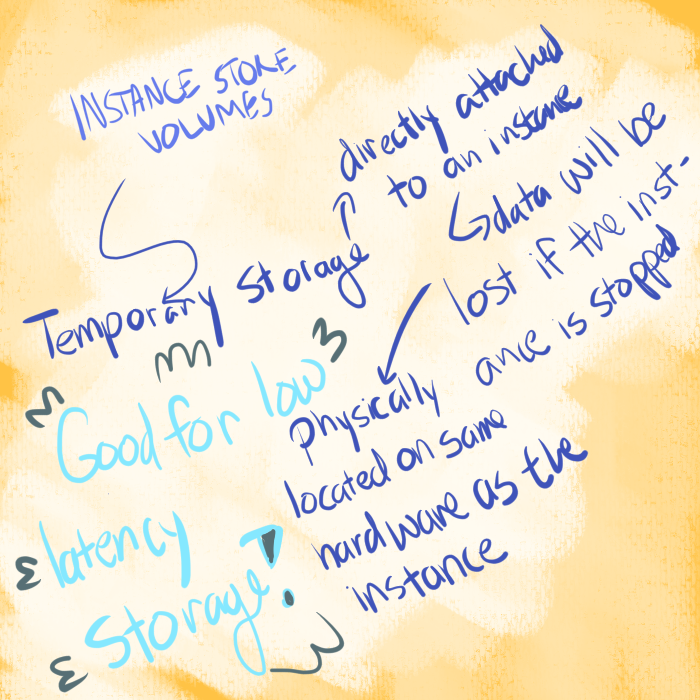 INSTANCE STORE
VOLUMES
Temporary storage
directly attached
to an instance
data will be
lost if the inst-
ance is stopped
physically
located on same
hardware as the
instance
Good for low
latency
storage!